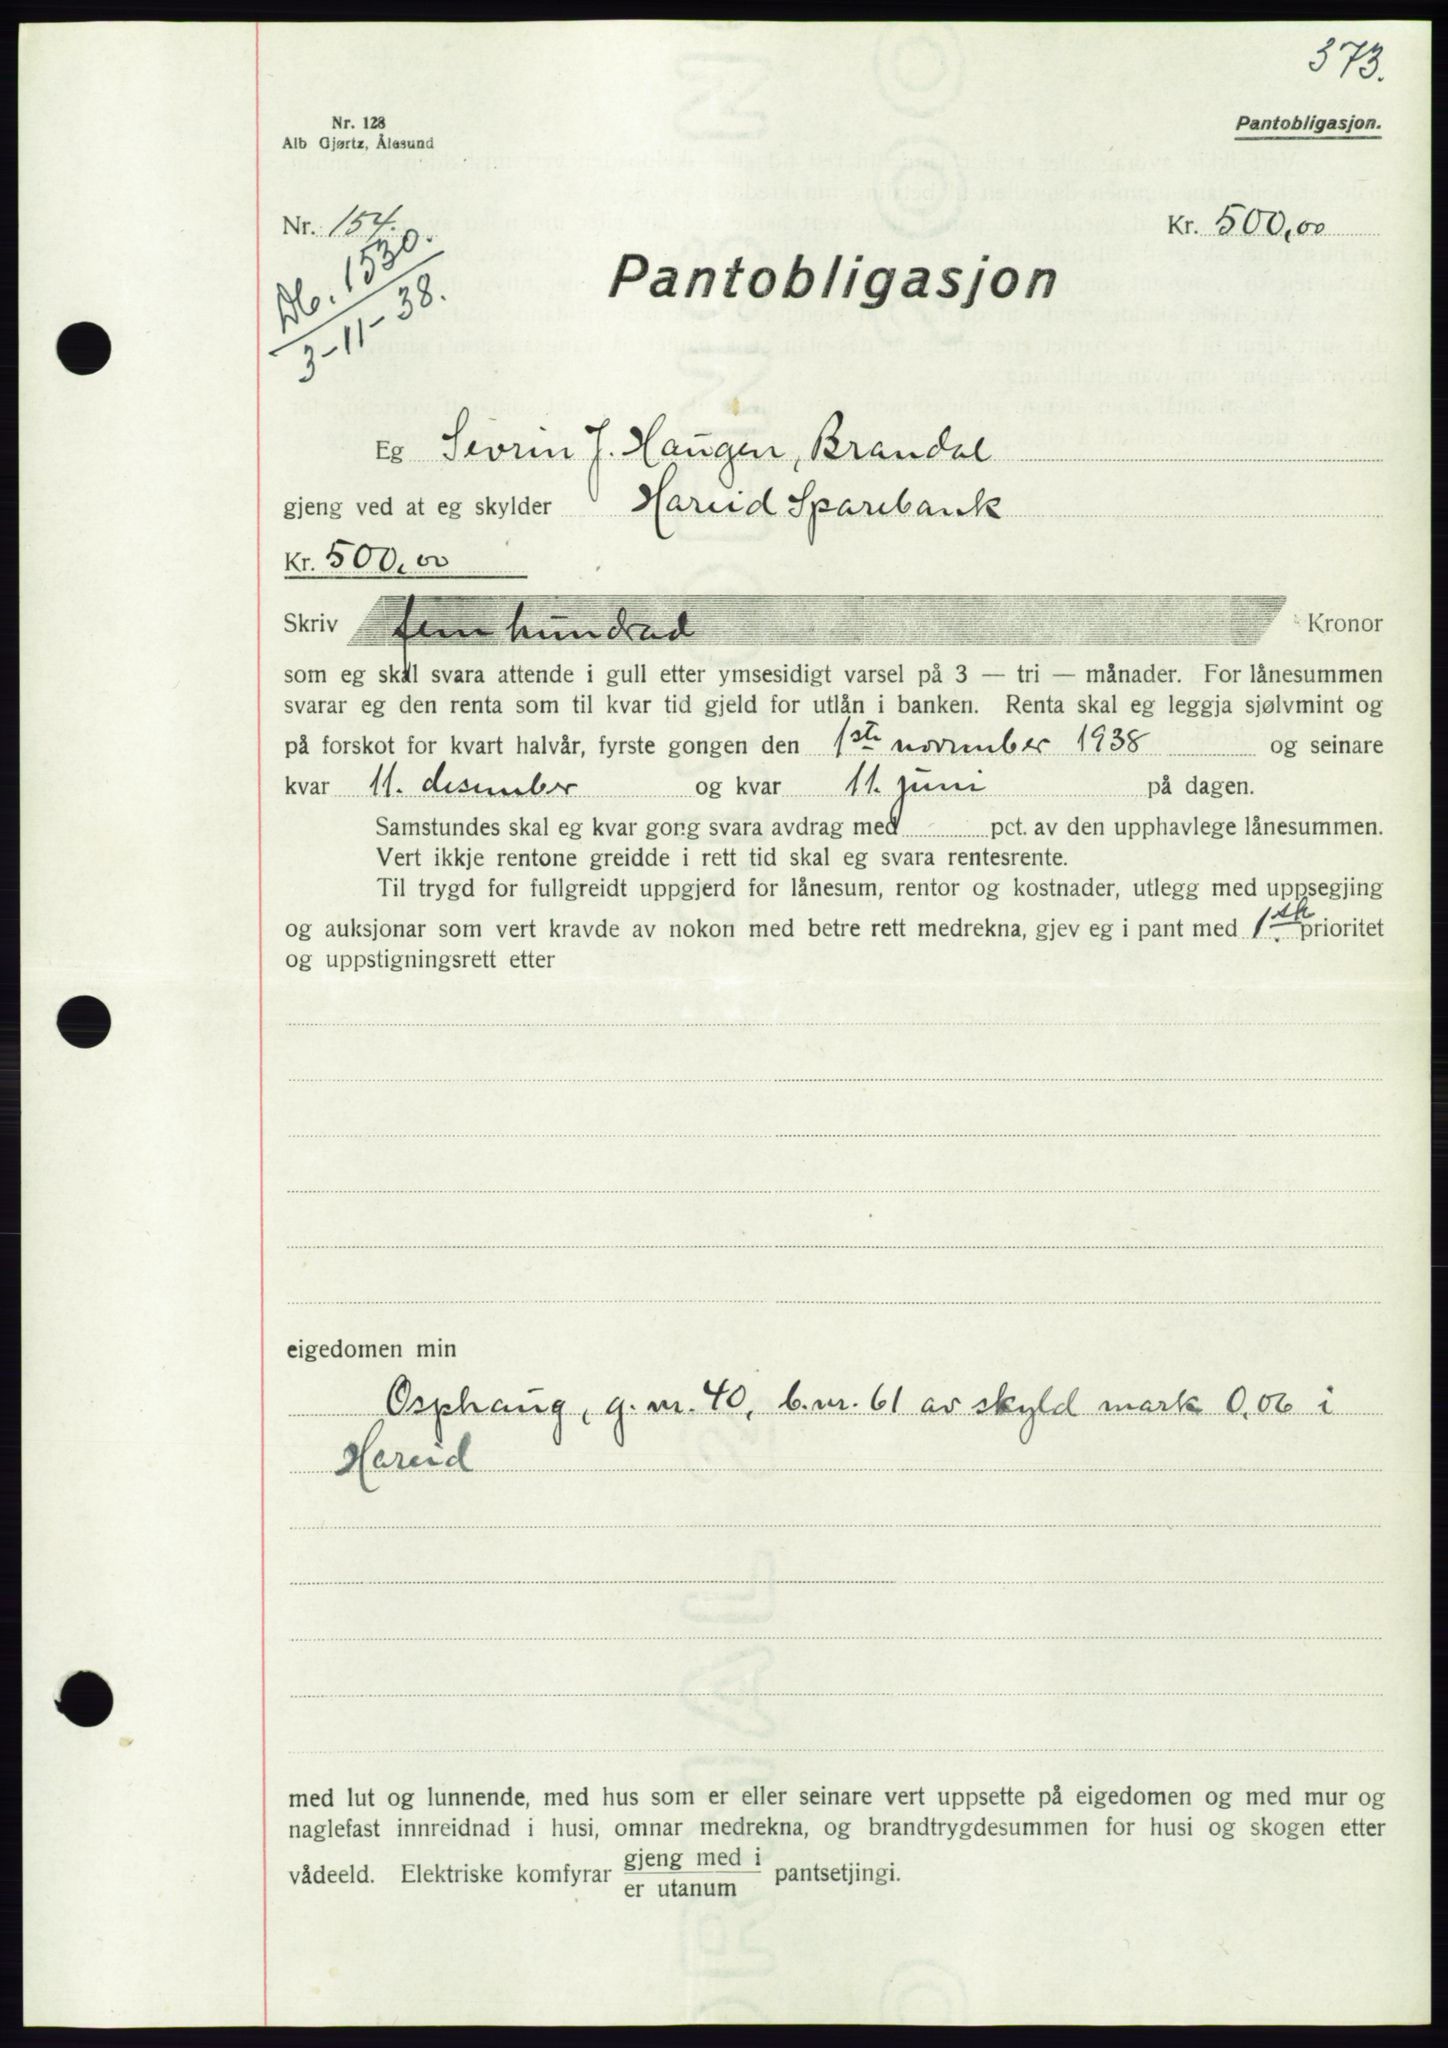 373.
Nr. 128
Alb Gjørtz, Ålesund
Pantobligasjon.
Nr. 154.
Kr. 500,00
Db. 1530.
3-11-38.
Pantobligasjon
Eg Sevrin J. Haugen, Brandal
gjeng ved at eg skylder Hareid Sparebank
Kr. 500,00
Skriv fem hundrad Kronor
som eg skal svara attende i gull etter ymsesidigt varsel på 3 — tri — månader. For lånesummen
svarar eg den renta som til kvar tid gjeld for utlån i banken. Renta skal eg leggja sjølvmint og
på forskot for kvart halvår, fyrste gongen den 1ste november 1938 og seinare
kvar 11. desember og kvar 11. juni på dagen.
Samstundes skal eg kvar gong svara avdrag med pct. av den upphavlege lånesummen.
Vert ikkje rentone greidde i rett tid skal eg svara rentesrente.
Til trygd for fullgreidt uppgjerd for lånesum, rentor og kostnader, utlegg med uppsegjing
og auksjonar som vert kravde av nokon med betre rett medrekna, gjev eg i pant med 1ste prioritet
og uppstigningsrett etter
eigedomen min
Osphaug, g.nr. 40, b.nr. 61 av skyld mark 0,06 i
Hareid
med lut og lunnende, med hus som er eller seinare vert uppsette på eigedomen og med mur og
naglefast innreidnad i husi, omnar medrekna, og brandtrygdesummen for husi og skogen etter
vådeeld. Elektriske komfyrar gjeng med i / er utanum pantsetjingi.